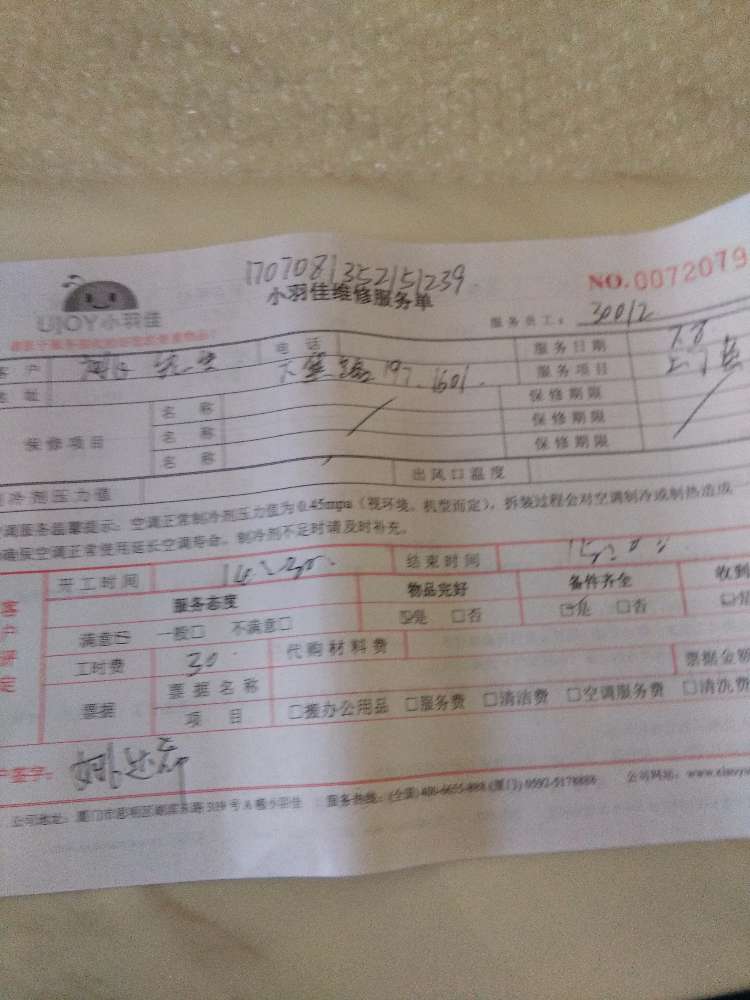 1707081352151239
小羽佳维修服务单
NO.0072079
UJOY小羽佳
服务员工： 30012
客户 先生 电话 服务日期 7.8
地址 197-1601 服务项目
保修项目 名称 保修期限
名称 保修期限
名称 保修期限
冷剂压力值 出风口温度
调服务品温馨提示：空调正常制冷剂压力值为0.45mpa（视环境、机型而定），拆装过程会对空调制冷或制热造成
确保空调正常使用延长空调寿命。制冷剂不足时请及时补充。
客户评定
开工时间 14:30 结束时间 15:00
服务态度 物品完好 备件齐全 收到
满意☑ 一般□ 不满意□ ☑是 □否 ☑是 □否
工时费 30 代购材料费
票据 票据名称 票据金额
项目 □搬办公用品 □服务费 □清洁费 □空调服务费 □清洗费
户签字：
公司地址：厦门市思明区湖滨东路319号A栋小羽佳 服务热线：(全国) (厦门) 0592-5178888 公司网站：